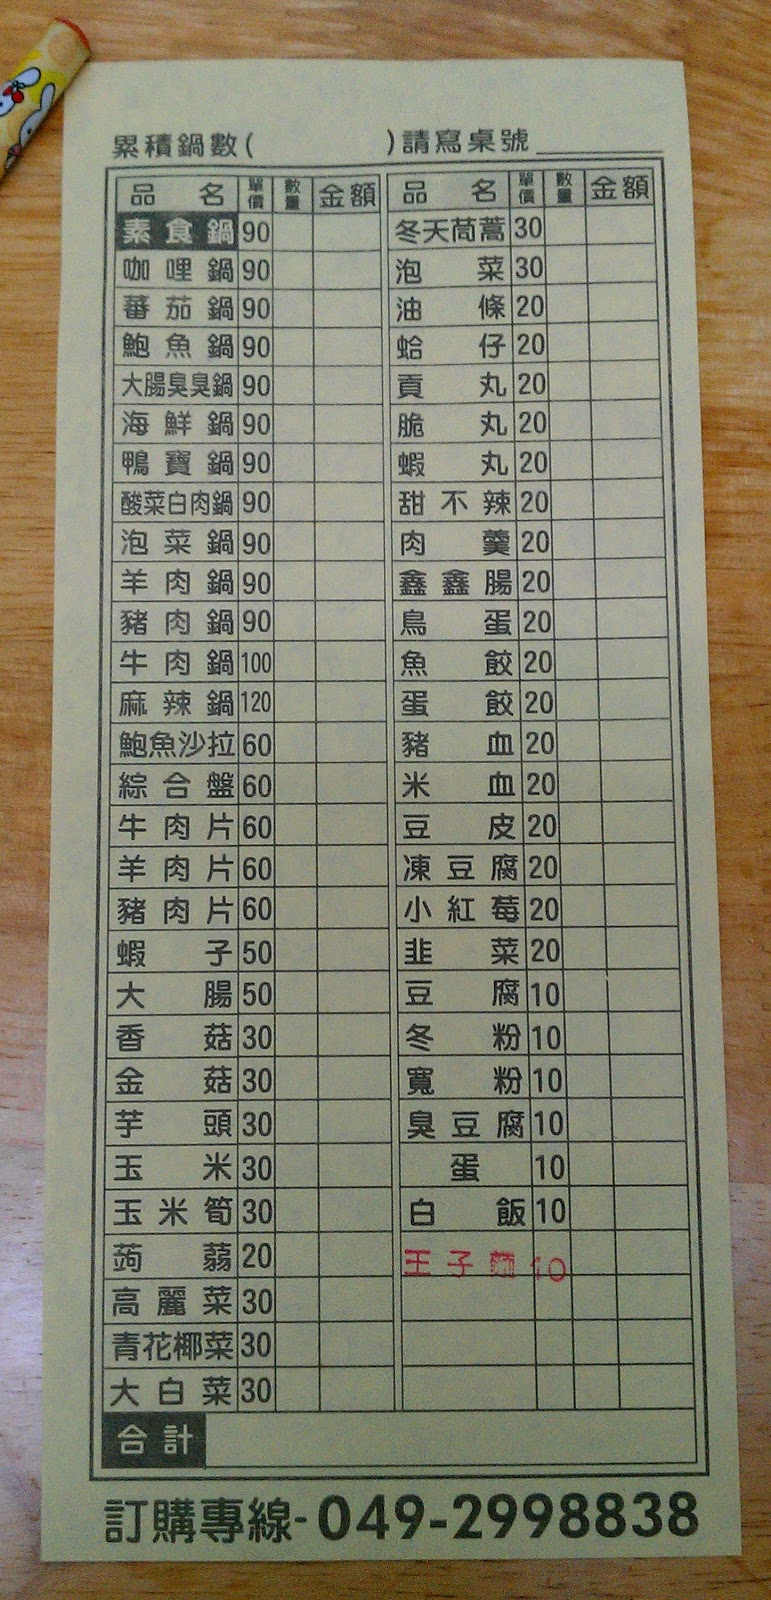 累積鍋數(　　　　)請寫桌號
品名 單價 數量 金額 品名 單價 數量 金額
素食鍋 90 冬天茼蒿 30
咖哩鍋 90 泡菜 30
蕃茄鍋 90 油條 20
鮑魚鍋 90 蛤仔 20
大腸臭臭鍋 90 貢丸 20
海鮮鍋 90 脆丸 20
鴨寶鍋 90 蝦丸 20
酸菜白肉鍋 90 甜不辣 20
泡菜鍋 90 肉羹 20
羊肉鍋 90 鑫鑫腸 20
豬肉鍋 90 鳥蛋 20
牛肉鍋 100 魚餃 20
麻辣鍋 120 蛋餃 20
鮑魚沙拉 60 豬血 20
綜合盤 60 米血 20
牛肉片 60 豆皮 20
羊肉片 60 凍豆腐 20
豬肉片 60 小紅莓 20
蝦子 50 韭菜 20
大腸 50 豆腐 10
香菇 30 冬粉 10
金菇 30 寬粉 10
芋頭 30 臭豆腐 10
玉米 30 蛋 10
玉米筍 30 白飯 10
蒟蒻 20 王子麵 10
高麗菜 30
青花椰菜 30
大白菜 30
合計
訂購專線-049-2998838